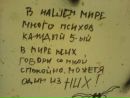 В НАШЕМ МИРЕ
МНОГО ПСИХОВ
КАЖДЫЙ 5-ЫЙ
В МИРЕ ПСИХ
ГОВОРИ СО МНОЙ
СПОКОЙНО, МОЖЕТ Я
ОДИН ИЗ НИХ!